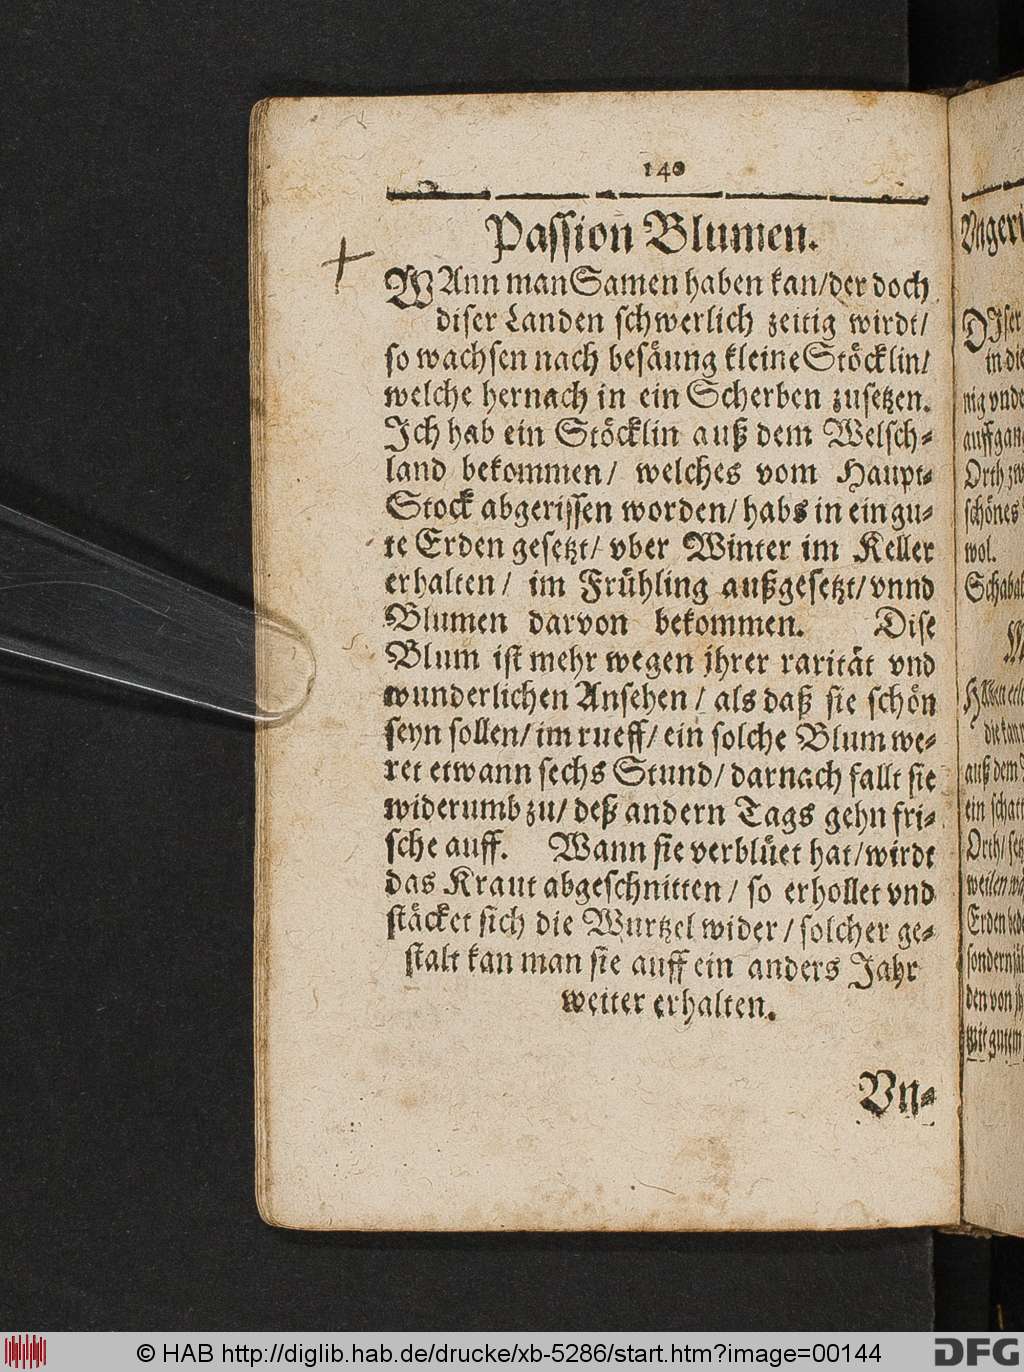 140
Passion Blumen.
WAnn man Samen haben kan/der doch
diser Landen schwerlich zeitig wirdt/
so wachsen nach besäung kleine Stöcklin/
welche hernach in ein Scherben zusetzen.
Ich hab ein Stöcklin auß dem Welsch-
land bekommen/ welches vom Haupt-
Stock abgerissen worden/ habs in ein gu-
te Erden gesetzt/ vber Winter im Keller
erhalten/ im Frühling außgesetzt/ vnnd
Blumen darvon bekommen. Dise
Blum ist mehr wegen jhrer rarität vnd
wunderlichen Ansehen/ als daß sie schön
seyn sollen/ im rueff/ ein solche Blum we-
ret etwann sechs Stund/ darnach fallt sie
widerumb zu/ deß andern Tags gehn fri-
sche auff. Wann sie verblüet hat/ wirdt
das Kraut abgeschnitten/ so erhollet vnd
stäcket sich die Wurtzel wider/ solcher ge-
stalt kan man sie auff ein anders Jahr
weiter erhalten.
Vn-
Vngeri
DIser
in die
nig vnde
auffgang
Orth zw
schönes
wol.
Schabab
auß dem
ein schatt
Orth/ setz
weilen
Erden
sondern
den von jh
mit gutem
© HAB http://diglib.hab.de/drucke/xb-5286/start.htm?image=00144
DFG